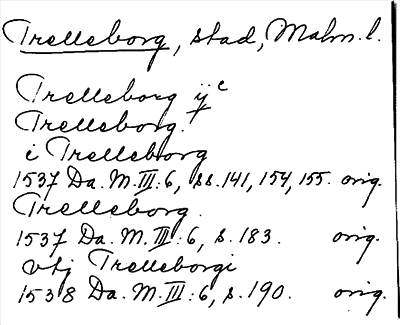 Trelleborg, stad, Malm. l.
Trelleborg ij c
Trelleborg.
i Trelleborg
1537 Da. M. III: 6, ss. 141, 154, 155. orig.
Trelleborg.
1537 Da. M. III: 6, s. 183. orig.
vtj Trelleborgi
1538 Da. M. III: 6, s. 190. orig.